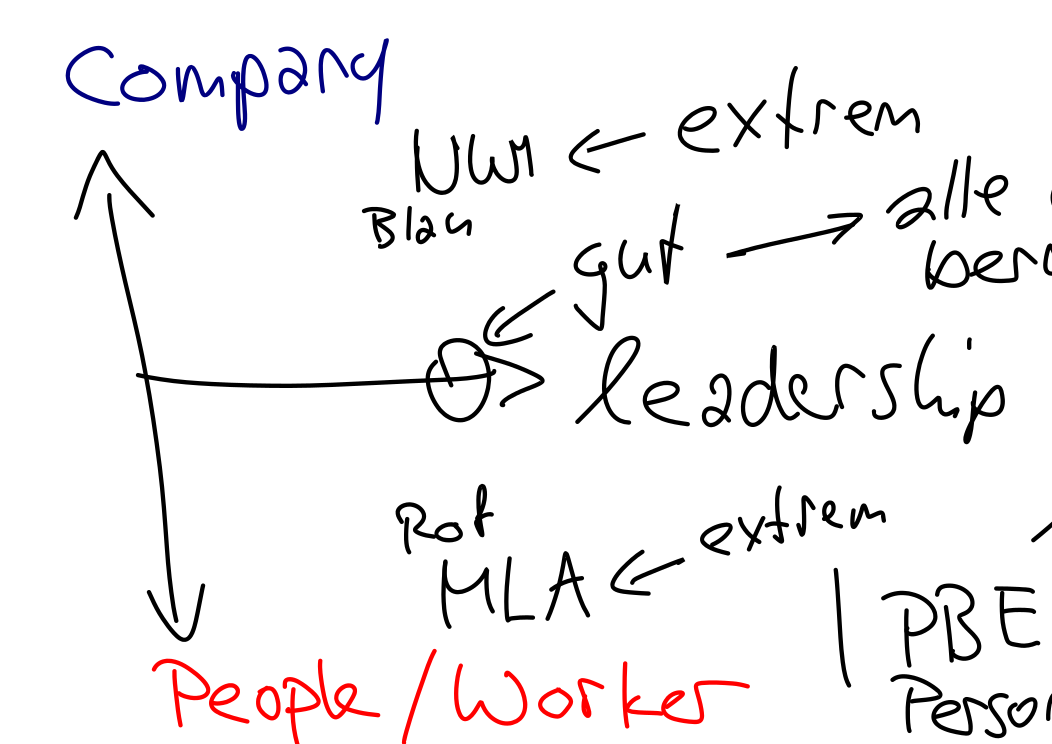 Company
NWM ← extrem
Blau
gut → alle
leadership
Rot
MLA ← extrem
PBE
People/Worker